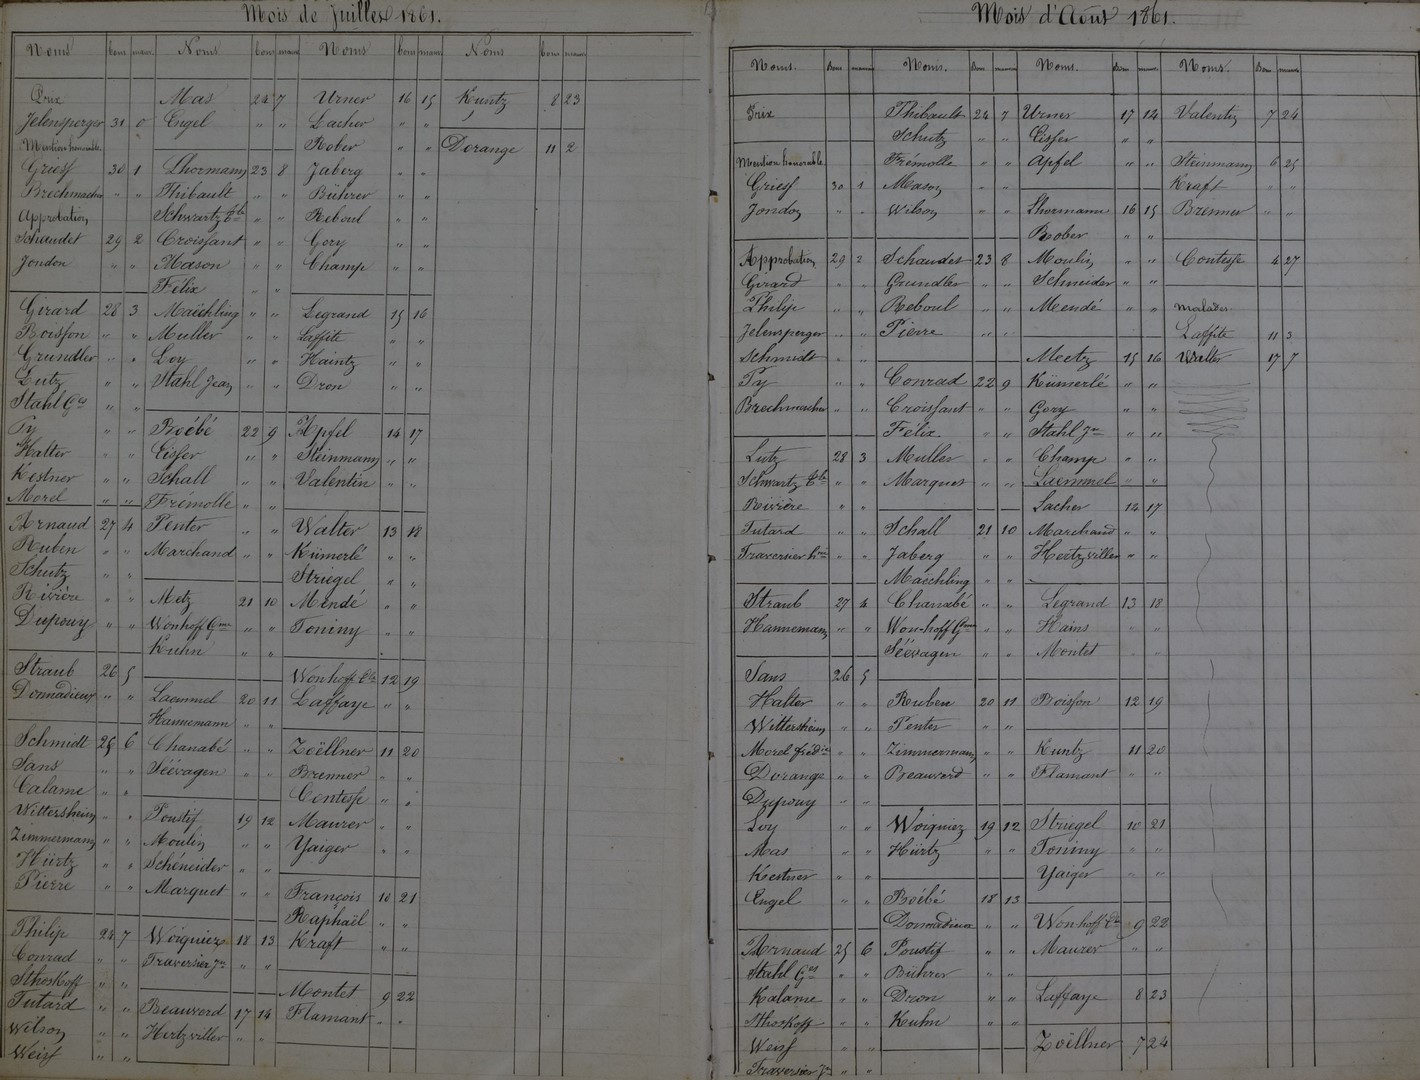 Mois de Juillet 1861.
Noms bons mauv. Noms bons mauv. Noms bons mauv. Noms bons mauv.
Prix
Jelensperger 31 0
Mention honorable "
Griess 30 1
Brechmacher " "
Approbation
Schaudet 29 2
Jondon " "
Girard 28 3
Boisson " "
Grundler " "
Lutz " "
Stahl Ges " "
Py " "
Halter " "
Kestner " "
Morel " "
Arnaud 27 4
Ruben " "
Schutz " "
Rivière " "
Dupouy " "
Straub 26 5
Donnadieux " "
Schmidt 25 6
Sans " "
Calame " "
Wittersheim " "
Zimmermann " "
Hürtz " "
Pierre " "
Philip 24 7
Conrad " "
Sthoskoff " "
Tutard " "
Wilson " "
Weiss " "
Mas 24 7
Engel " "
Lhormann 23 8
Thibault " "
Schwartz Bte " "
Croissant " "
Mason " "
Félix " "
Maëchling " "
Muller " "
Loy " "
Stahl Jean " "
Boébé 22 9
Eisser " "
Schall " "
Frémolle " "
Penter " "
Marchand " "
Metz 21 10
Wonhoff Gme " "
Kuhn " "
Laemmel 20 11
Hannemann " "
Chanabé " "
Séevagen " "
Poustif 19 12
Moulin " "
Schéneider " "
Marquet " "
Woigniez 18 13
Traversier Jn " "
Beauverd 17 14
Hertzviller " "
Urner 16 15
Lacher " "
Bober " "
Jaberg " "
Bührer " "
Reboul " "
Gory " "
Champ " "
Legrand 15 16
Laffite " "
Haintz " "
Dron " "
Apfel 14 17
Steinmann " "
Valentin " "
Walter 13 18
Kümerlé " "
Striegel " "
Mendé " "
Toniny " "
Wonhoff Ele 12 19
Laffaye " "
Zoëllner 11 20
Brenner " "
Contesse " "
Maurer " "
Yaiger " "
François 10 21
Raphaël " "
Kraft " "
Montet 9 22
Flamant " "
Kuntz 8 23
Dorange 11 2
Mois d'Août 1861.
Noms. Bons mauv. Noms. Bons mauv. Noms. Bons mauv. Noms. Bons mauv.
Prix
Mention honorable
Griess 30 1
Jondon " "
Approbation 29 2
Girard " "
Philip " "
Jelensperger " "
Schmidt " "
Py " "
Brechmacher " "
Lutz 28 3
Schwartz Bte " "
Rivière " "
Tutard " "
Traversier hri " "
Straub 27 4
Hannemann " "
Sans 26 5
Halter " "
Wittersheim " "
Morel frédic " "
Dorange " "
Dupouy " "
Loy " "
Mas " "
Kestner " "
Engel " "
Arnaud 25 6
Stahl Ges " "
Kalame " "
Sthoskoff " "
Weiss " "
Traversier Jn " "
Thibault 24 7
Schutz " "
Frémolle " "
Mason " "
Wilson " "
Schaudet 23 8
Grundler " "
Reboul " "
Pierre " "
Conrad 22 9
Croissant " "
Félix " "
Muller " "
Marquet " "
Schall 21 10
Jaberg " "
Maëchling " "
Chanabé " "
Won-hoff Gme " "
Séevagen " "
Ruben 20 11
Penter " "
Zimmermann " "
Beauverd " "
Woigniez 19 12
Hürtz " "
Boébé 18 13
Donnadieux " "
Poustif " "
Bührer " "
Dron " "
Kuhn " "
Urner 17 14
Eisser " "
Apfel " "
Lhormann 16 15
Bober " "
Moulin " "
Schneider " "
Mendé " "
Meetz 15 16
Kümerlé " "
Gory " "
Stahl Jn " "
Champ " "
Laemmel " "
Lacher 14 17
Marchand " "
Hertzviller " "
Legrand 13 18
Hains " "
Montet " "
Boisson 12 19
Kuntz 11 20
Flamant " "
Striegel 10 21
Toniny " "
Yaiger " "
Wonhoff Ele 9 22
Maurer " "
Laffaye 8 23
Zoëllner 7 24
Valentin 7 24
Steinmann 6 25
Kraft " "
Brenner " "
Contesse 4 27
malades
Laffite 11 3
Walter 17 7